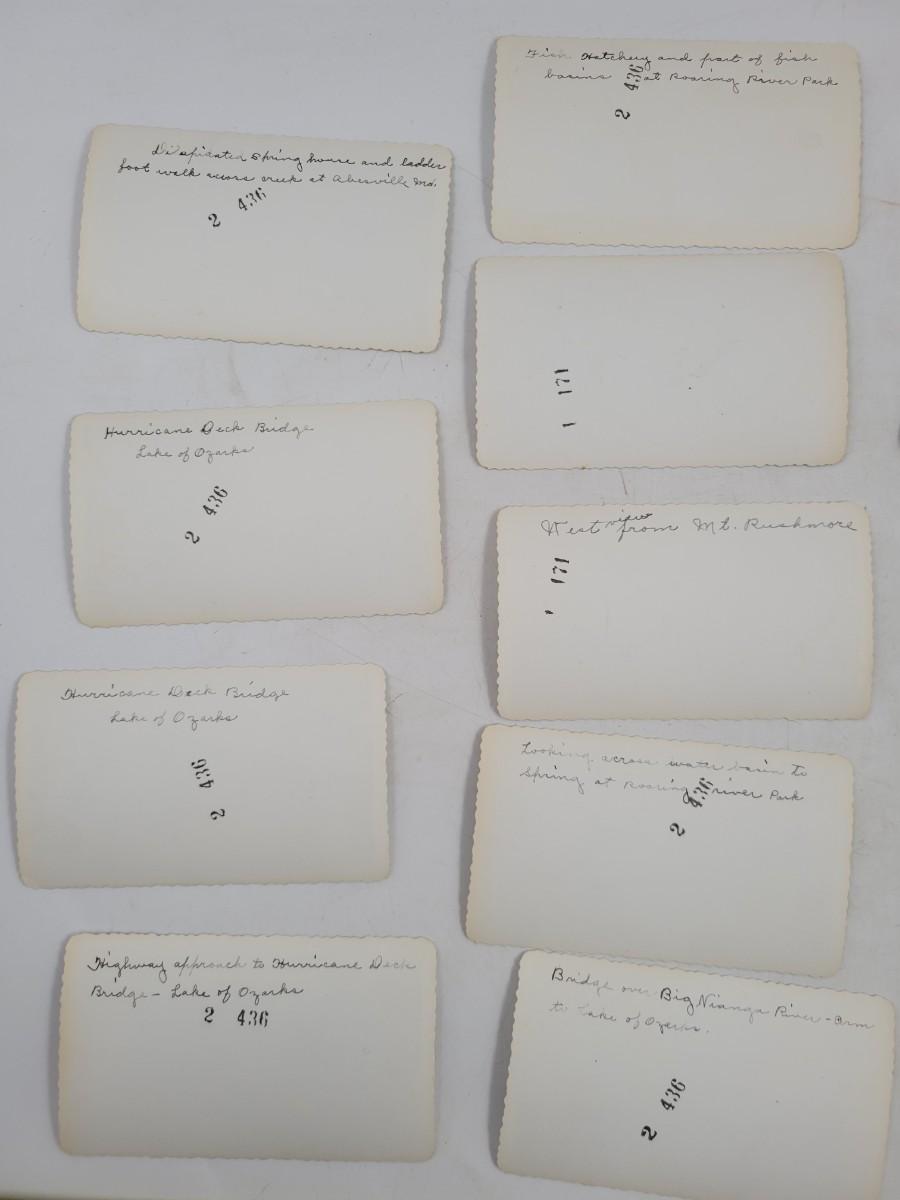 Dilapidated Spring house and ladder
foot walk across creek at Abesville Mo.
2 436
Hurricane Deck Bridge
Lake of Ozarks
2 436
Hurricane Deck Bridge
Lake of Ozarks
436 2
Highway approach to Hurricane Deck
Bridge - Lake of Ozarks
2 436
Fish Hatchery and part of fish
basins at Roaring River Park
2 436
1 171
West view from Mt. Rushmore
171
Looking across water basin to
Spring at Roaring River Park
2 436
Bridge over Big Nianga River - Arm
to Lake of Ozarks.
2 436